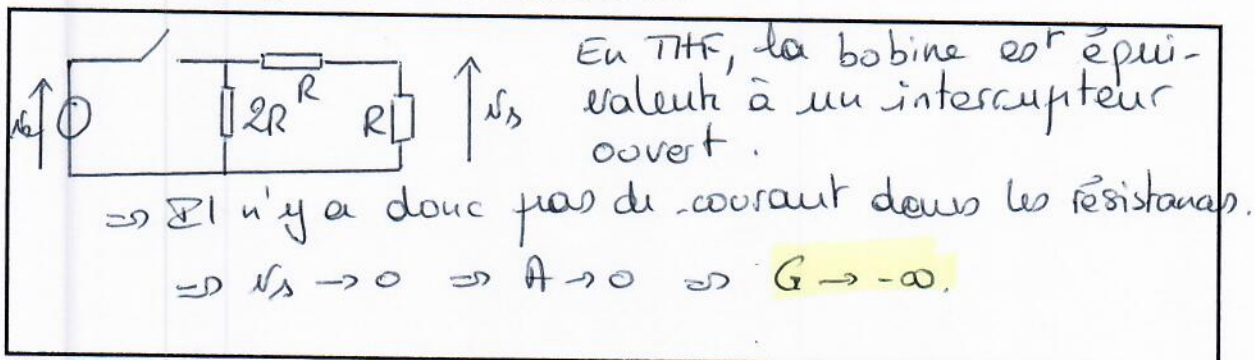 En THF, la bobine est équi-
valente à un interrupteur
ouvert.
ve 2R R R vs
=> Il n'y a donc pas de courant dans les résistances.
=> vs → 0 => A → 0 => G → -∞.